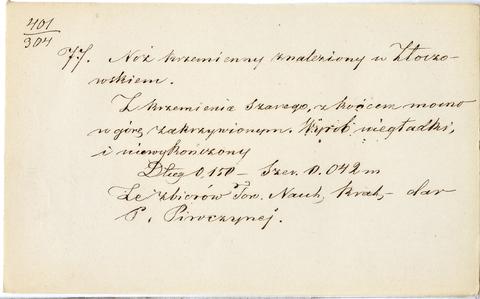 401
304
77. Nóż krzemienny znaleziony w Złoczo-
wskiem.
Z krzemienia szarego, z końcem mocno
w górę zakrzywionym. Wyrób niegładki,
i niewykończony
Dług 0.150 – Szer. 0.042 m
Ze zbiorów Tow. Nauk. Krak, – dar
P. Piruczynej.